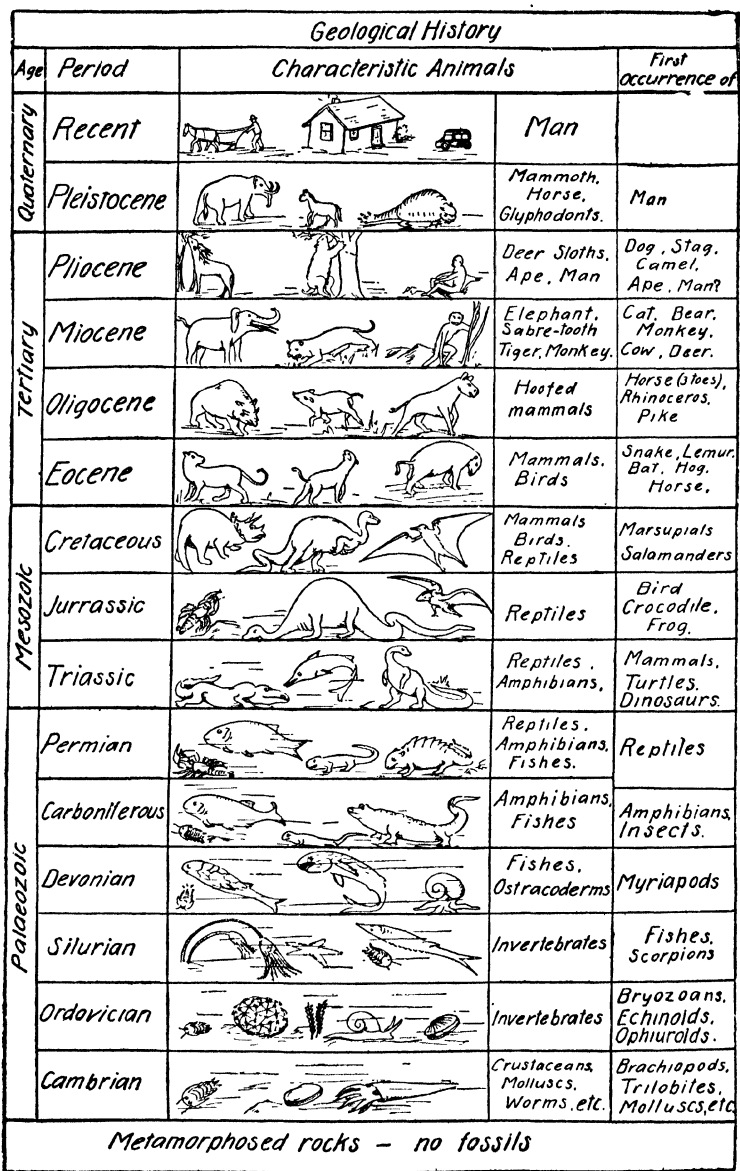 Geological History
Age Period Characteristic Animals First occurrence of
Quaternary
Recent
Man
Pleistocene
Mammoth,
Horse,
Glyphodonts.
Man
Tertiary
Pliocene
Deer Sloths,
Ape, Man
Dog, Stag,
Camel,
Ape, Man?
Miocene
Elephant,
Sabre-tooth
Tiger, Monkey.
Cat, Bear.
Monkey,
Cow, Deer.
Oligocene
Hoofed
mammals
Horse (3 toes),
Rhinoceros,
Pike
Eocene
Mammals.
Birds
Snake, Lemur.
Bat, Hog.
Horse,
Mesozoic
Cretaceous
Mammals
Birds.
Reptiles
Marsupials
Salamanders
Jurrassic
Reptiles
Bird
Crocodile,
Frog.
Triassic
Reptiles,
Amphibians,
Mammals,
Turtles.
Dinosaurs.
Palaeozoic
Permian
Reptiles,
Amphibians,
Fishes.
Reptiles
Carboniferous
Amphibians,
Fishes
Amphibians,
Insects.
Devonian
Fishes,
Ostracoderms
Myriapods
Silurian
Invertebrates
Fishes,
Scorpions
Ordovician
Invertebrates
Bryozoans,
Echinolds,
Ophiurolds.
Cambrian
Crustaceans,
Molluscs,
Worms, etc.
Brachiopods,
Trilobites,
Molluscs, etc.
Metamorphosed rocks – no fossils